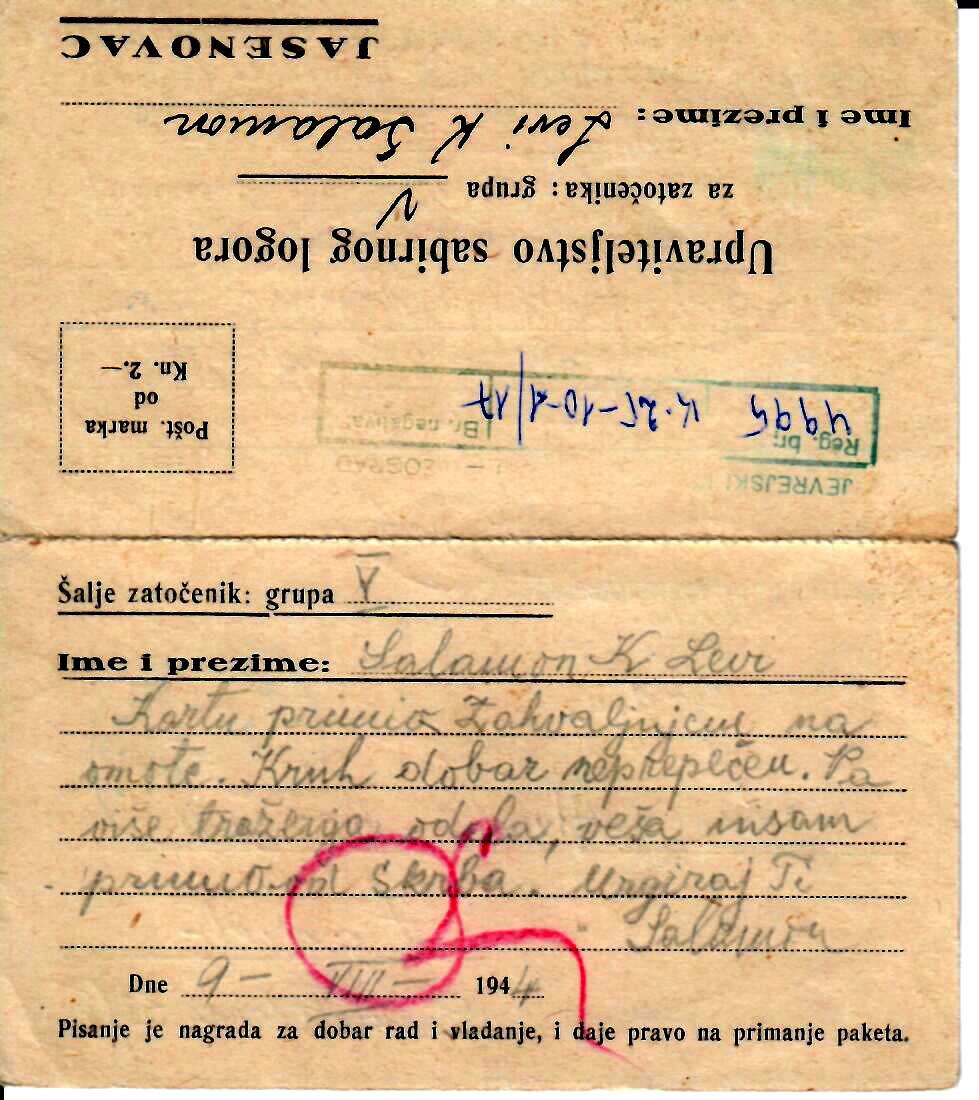 JEVREJSKI
Reg. br. 4995
Br. negativa
Pošt. marka
od
Kn. 2.—
Upraviteljstvo sabirnog logora
za zatočenika: grupa V
Ime i prezime: Levi K Salamon
JASENOVAC
Šalje zatočenik: grupa V
Ime i prezime: Salamon K Levi
Kartu primio Zahvaljujem na
omote. Kruh dobar neprepečen. Pa
više odela, veša nisam
primio od Skrba. Urgiraj Ti
Salamon
Dne 9 – VIII – 1944
Pisanje je nagrada za dobar rad i vladanje, i daje pravo na primanje paketa.